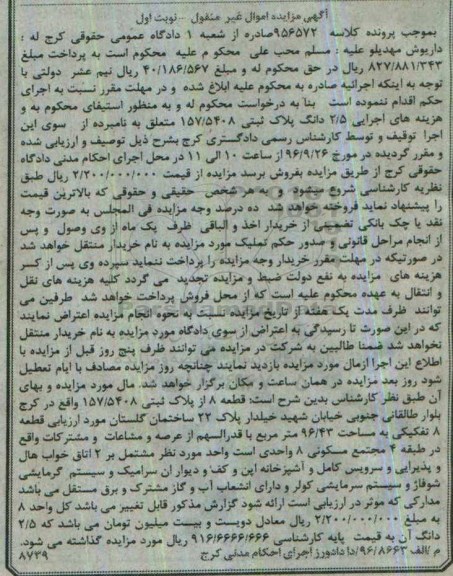 آگهی مزایده اموال غیر منقول - نوبت اول
بموجب پرونده کلاسه ۹۵۶۵۷۲صادره از شعبه ۱ دادگاه عمومی حقوقی کرج له :
داریوش مهدیلو علیه : مسلم محب علی محکو م علیه محکوم است به پرداخت مبلغ
۸۲۷/۸۸۱/۳۴۳ ریال در حق محکوم له و مبلغ ۴۰/۱۸۶/۵۶۷ ریال نیم عشر دولتی با
توجه به اینکه اجرائیه صادره به محکوم علیه ابلاغ شده و در مهلت مقرر نسبت به اجرای
حکم اقدام ننموده است بنا به درخواست محکوم له و به منظور استیفای محکوم به و
هزینه های اجرایی ۲/۵ دانگ پلاک ثبتی ۱۵۷/۵۴۰۸ متعلق به نامبرده از سوی این
اجرا توقیف و توسط کارشناس رسمی دادگستری کرج بشرح ذیل توصیف و ارزیابی شده
و مقرر گردیده در مورخ ۹۶/۹/۲۶ از ساعت ۱۰ الی ۱۱ در محل اجرای احکام مدنی دادگاه
حقوقی کرج از طریق مزایده بفروش برسد مزایده از قیمت ۲/۲۰۰/۰۰۰/۰۰۰ ریال طبق
نظریه کارشناسی شروع میشود و به هر شخص حقیقی و حقوقی که بالاترین قیمت
را پیشنهاد نماید فروخته خواهد شد ده درصد وجه مزایده فی المجلس به صورت وجه
نقد یا چک بانکی تضمینی از خریدار اخذ و الباقی ظرف یک ماه از وی وصول و پس
از انجام مراحل قانونی و صدور حکم تملیک مورد مزایده به نام خریدار منتقل خواهد شد
در صورتیکه در مهلت مقرر خریدار وجه مزایده را پرداخت ننماید سپرده وی پس از کسر
هزینه های مزایده به نفع دولت ضبط و مزایده تجدید می گردد کلیه هزینه های نقل
و انتقال به عهده محکوم علیه است که از محل فروش پرداخت خواهد شد طرفین می
توانند ظرف مدت یک هفته از تاریخ مزایده نسبت به نحوه انجام مزایده اعتراض نمایند
که در این صورت تا رسیدگی به اعتراض از سوی دادگاه مورد مزایده به نام خریدار منتقل
نخواهد شد ضمنا طالبین به شرکت در مزایده می توانند ظرف پنج روز قبل از مزایده با
اطلاع این اجرا ازمال مورد مزایده بازدید نمایند چنانچه روز مزایده مصادف با ایام تعطیل
شود روز بعد مزایده در همان ساعت و مکان برگزار خواهد شد. مال مورد مزایده و بهای
آن طبق نظر کارشناس بدین شرح است: قطعه ۸ از پلاک ثبتی ۱۵۷/۵۴۰۸ واقع در کرج
بلوار طالقانی جنوبی خیابان شهید خیلدار پلاک ۲۲ ساختمان گلستان مورد ارزیابی قطعه
۸ تفکیکی به مساحت ۹۶/۴۳ متر مربع با قدرالسهم از عرصه و مشاعات و مشترکات واقع
در طبقه ۴ مجتمع مسکونی ۸ واحدی است واحد مورد نظر مشتمل بر ۲ اتاق خواب هال
و پذیرایی و سرویس کامل و آشپزخانه اپن و کف و دیوار ان سرامیک و سیستم گرمایشی
شوفاژ و سیستم سرمایشی کولر و دارای انشعاب آب و گاز مشترک و برق مستقل می باشد
مدارکی که موثر در ارزیابی است ارائه شود گزارش مذکور قابل تغییر می باشد کل واحد ۸
به مبلغ ۲/۲۰۰/۰۰۰/۰۰۰ ریال معادل دویست و بیست میلیون تومان می باشد که ۲/۵
دانگ آن به قیمت پایه کارشناسی ۹۱۶/۶۶۶۶/۶۶۶ ریال مورد مزایده گذاشته می شود.
م /الف ۹۶/۸۶۶۳/دا دادورز اجرای احکام مدنی کرج ۸۷۳۹